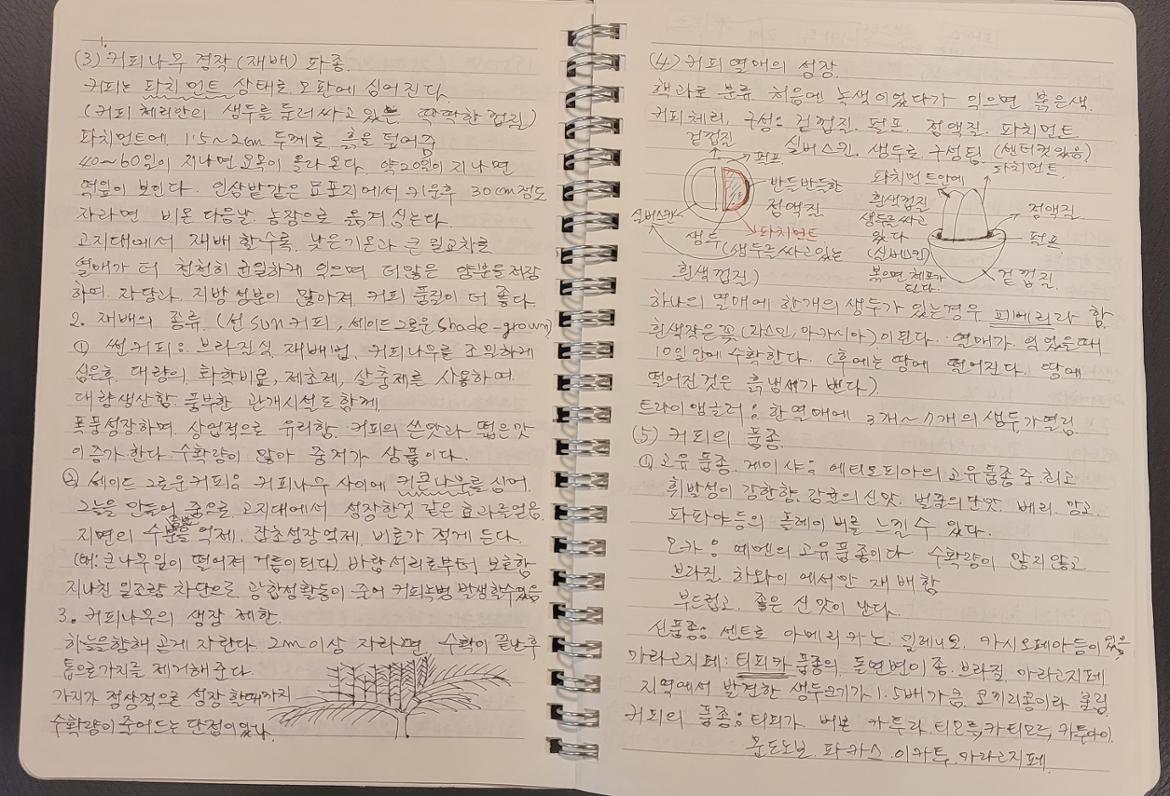 (3) 커피나무 경작(재배) 파종.
커피는 파치먼트 상태로 모판에 심어진다.
(커피 체리안의 생두를 둘러싸고 있는 딱딱한 껍질)
파치먼트에 1.5~2cm 두께로 흙을 덮어줌
40~60일이 지나면 묘목이 올라온다. 약20일이 지나면
떡잎이 보인다. 인삼밭같은 묘포지에서 키운후 30cm정도
자라면 비온 다음날 농장으로 옮겨 심는다.
고지대에서 재배 할수록 낮은기온과 큰 일교차로
열매가 더 천천히 균일하게 익으며 더많은 양분을 저장
하여. 자당과. 지방 성분이 많아져 커피 품질이 더 좋다.
2. 재배의 종류. (선 sun커피, 셰이드그로운 shade-grown)
① 썬커피: 브라질식 재배법, 커피나무를 조밀하게
심은후. 대량의 화학비료, 제초제, 살충제를 사용하여.
대량생산함. 풍부한 관개시설도 함께.
폭풍성장하며. 상업적으로 유리함. 커피의 쓴맛과 떫은맛
이 증가한다. 수확량이 많아 중저가 상품이다.
② 셰이드 그로운커피: 커피나무 사이에 키큰나무를 심어.
그늘을 만들어 줌으로 고지대에서 성장한것 같은 효과를얻음.
지면의 수분증발 억제. 잡초성장억제. 비료가 적게 든다.
(예: 큰나무잎이 떨어져 거름이된다) 바람 서리로부터 보호함
지나친 일조량 차단으로 광합성활동이 줄어 커피녹병 발생할수있음
3. 커피나무의 생장 제한.
하늘을향해 곧게 자란다. 2m이상 자라면 수확이 끝난후
톱으로가지를 제거해준다.
가지가 정상적으로 성장 할때까지
수확량이 줄어드는 단점이있다.
(4) 커피 열매의 성장.
핵과로 분류 처음에 녹색이었다가 익으면 붉은색.
커피체리, 구성: 겉껍질. 펄프. 점액질. 파치먼트.
실버스킨. 생두로 구성됨. (센터컷 있음)
겉껍질
펄프
반들반들한
점액질
파치먼트
실버스킨
생두
(생두를싸고있는
흰색껍질)
파치먼트안에
흰색껍질
생두를 싸고
있다
(실버스킨)
볶으면 체프가
된다.
파치먼트.
점액질
펄프
겉껍질.
하나의 열매에 한개의 생두가 있는경우 피베리라 함.
흰색작은꽃(자스민, 아카시아)이 핀다. 열매가 익었을때
10일안에 수확한다. (후에는 땅에 떨어진다. 땅에
떨어진것은 흙냄세가 밴다.)
트라이앵글러: 한열매에 3개~7개의 생두가열림.
(5) 커피의 품종.
①고유품종. 게이샤: 에티오피아의 고유품종중 최고
휘발성이 강한향. 감귤의신맛. 벌꿀의단맛. 베리. 망고.
파파야등의 플레이버를 느낄 수 있다.
모카: 예멘의 고유품종이다 수확량이 많지않고
브라질. 하와이 에서만 재배함
부드럽고. 좋은 신맛이 난다.
신품종: 센트로 아메리카노. 밀레니오. 카시오페아등이 있음
마라고지페: 티피카 품종의 돌연변이종. 브라질 마라고지페
지역에서 발견한 생두크기가 1.5배가큼 코끼리콩이라 불림
커피의 품종: 티피카 버본 카투라. 티모르, 카티모르, 카투아이.
문도노보. 파카스. 이카투. 마라고지페.